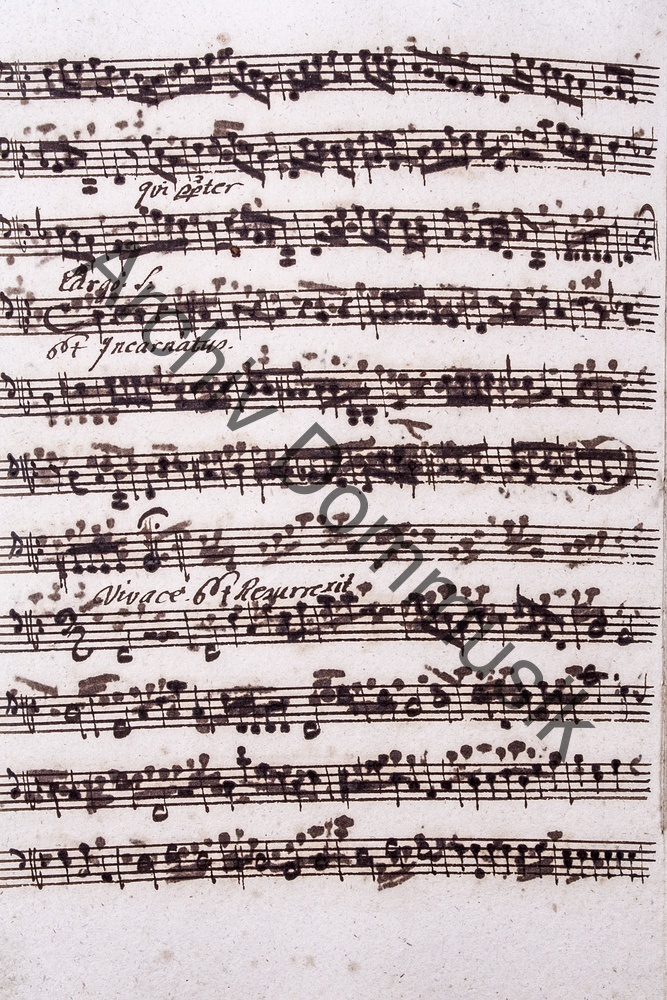 qui ppter
Largo: f:
et Incarnatus.
Vivace et Resurrexit
Archiv Dommusik